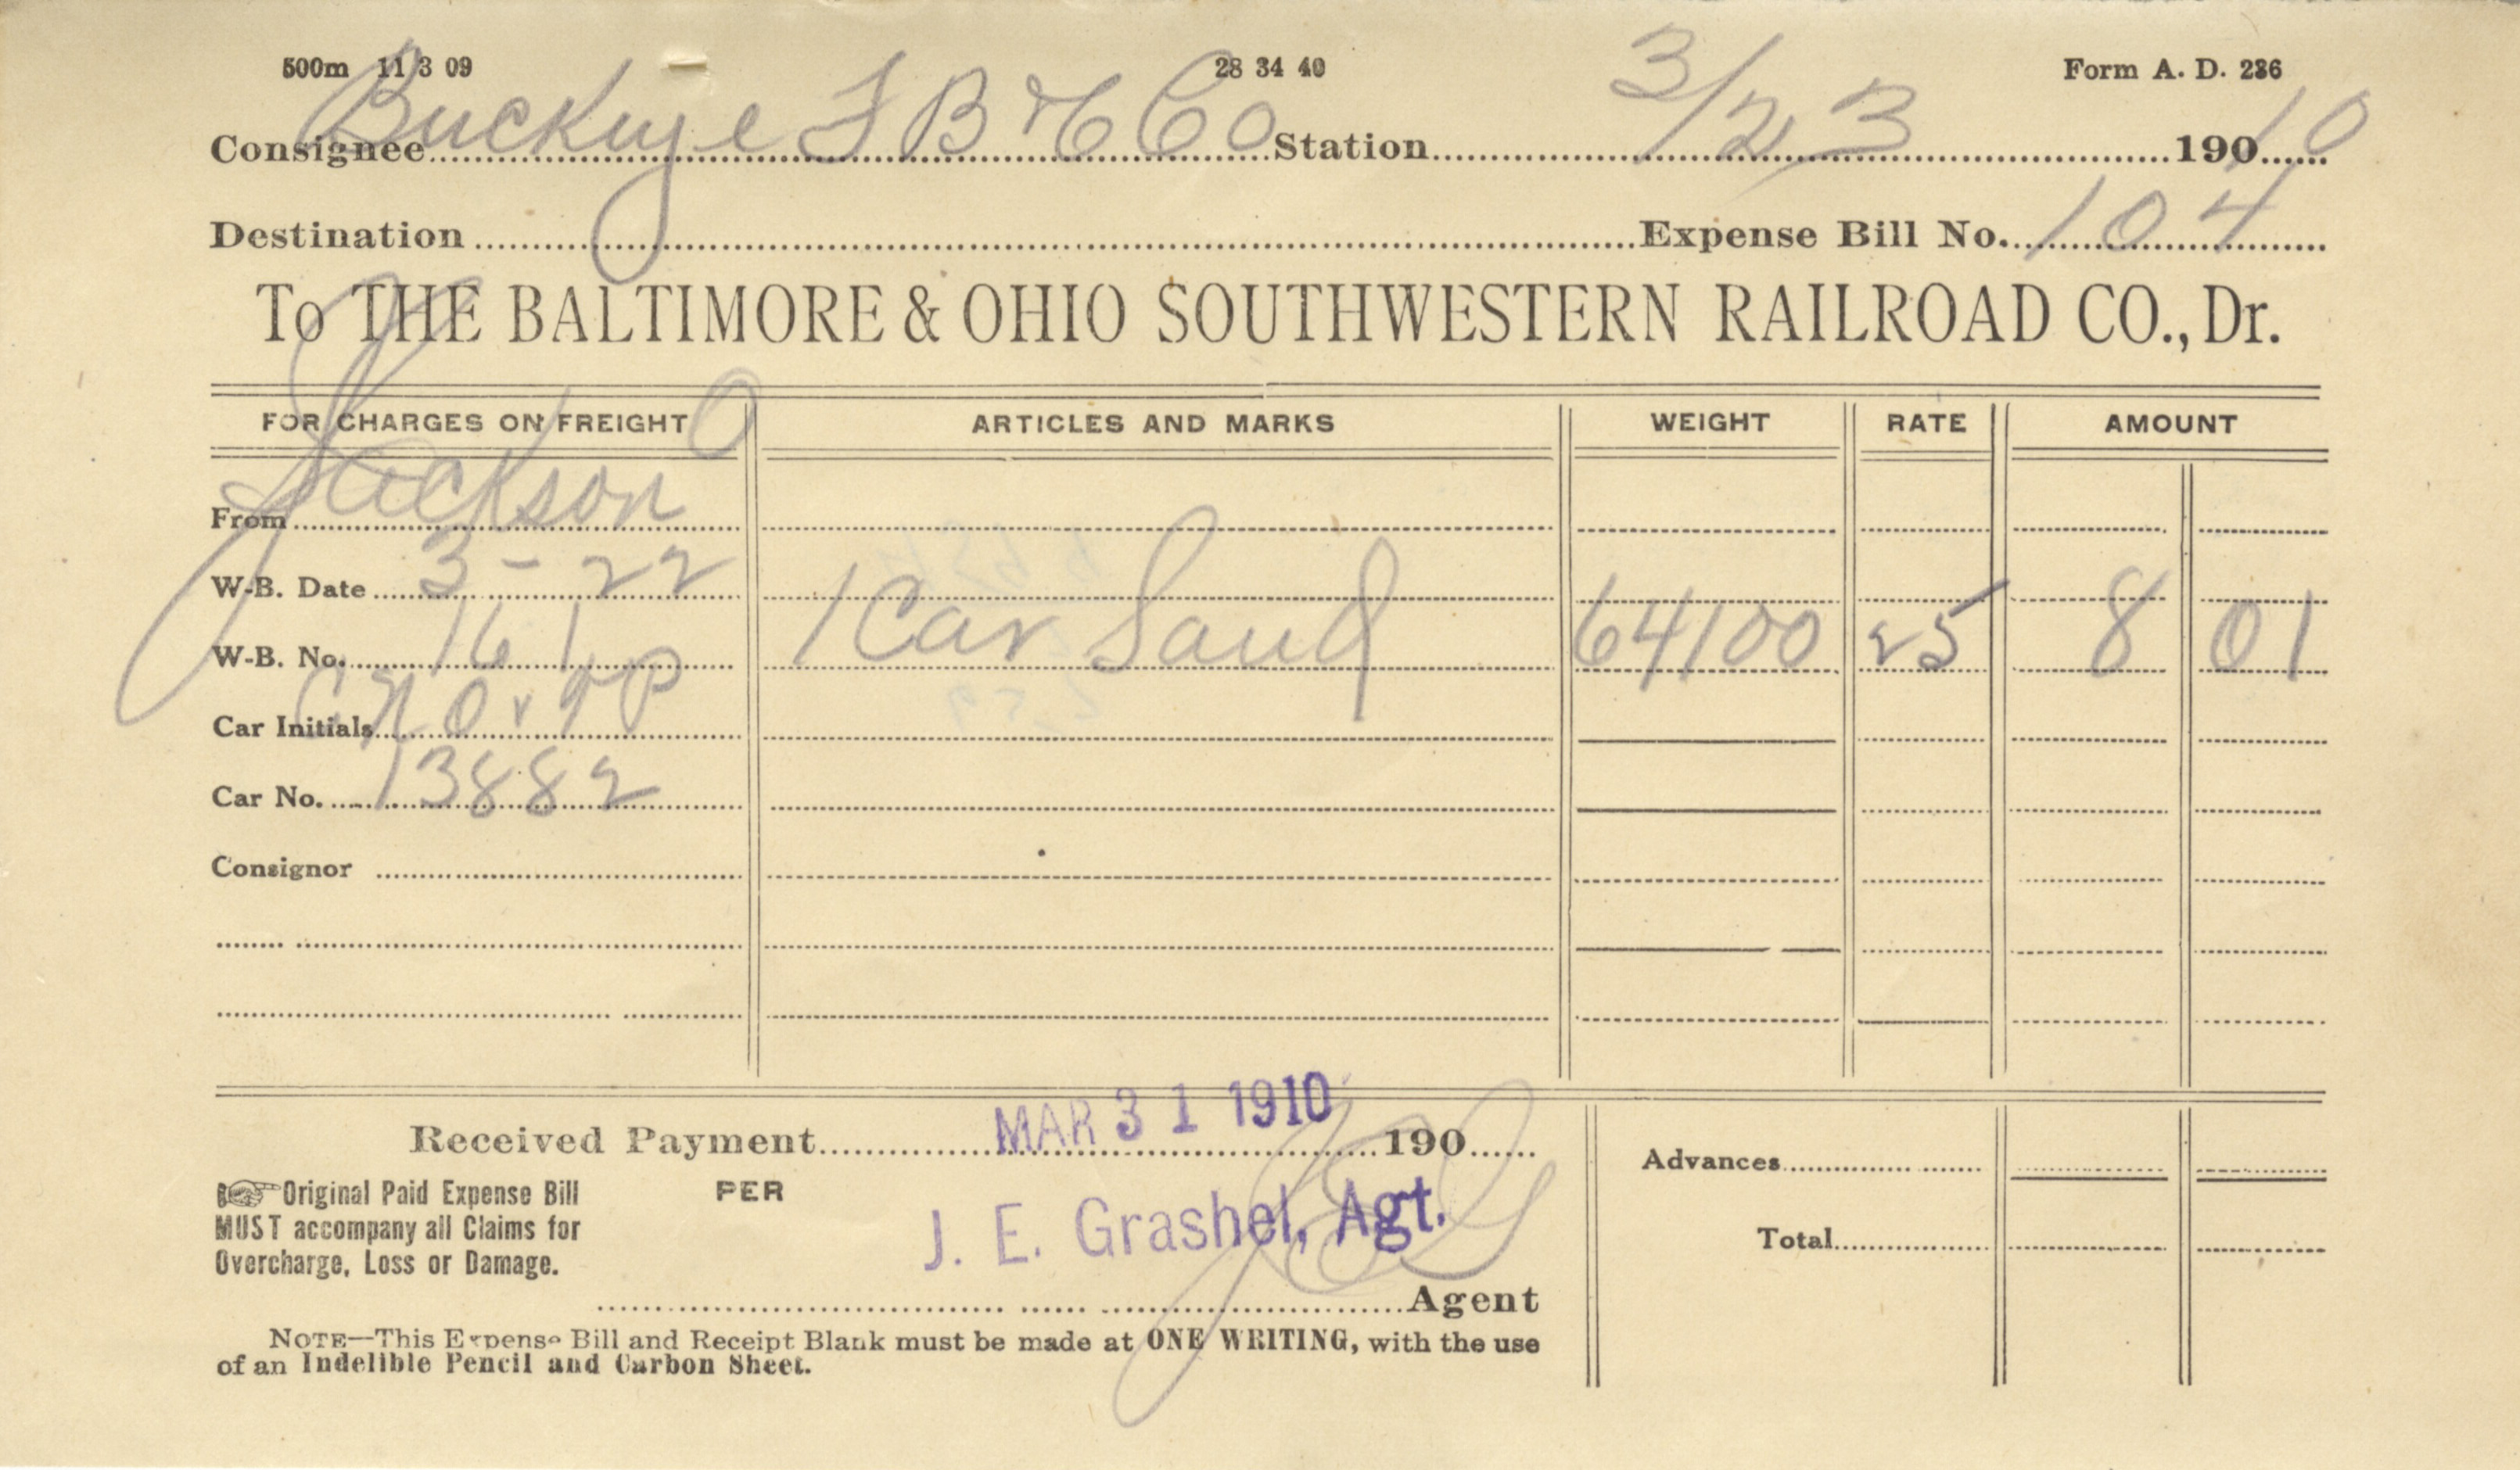 500m 11 3 09 28 34 40 Form A. D. 236
Consignee Buckeye F B & Co Station 3/23 190 10
Destination Expense Bill No. 104
To THE BALTIMORE & OHIO SOUTHWESTERN RAILROAD CO., Dr.
FOR CHARGES ON FREIGHT ARTICLES AND MARKS WEIGHT RATE AMOUNT
From Jackson O
W-B. Date 3-22
W-B. No. 161 1 Car Sand 64100 25 8 01
Car Initials
Car No. 13882
Consignor
Received Payment MAR 31 1910 190
Advances
Original Paid Expense Bill PER
MUST accompany all Claims for
Overcharge, Loss or Damage.
J. E. Grashel, Agt.
JEG
Total
Agent
NOTE—This Expense Bill and Receipt Blank must be made at ONE WRITING, with the use
of an Indelible Pencil and Carbon Sheet.